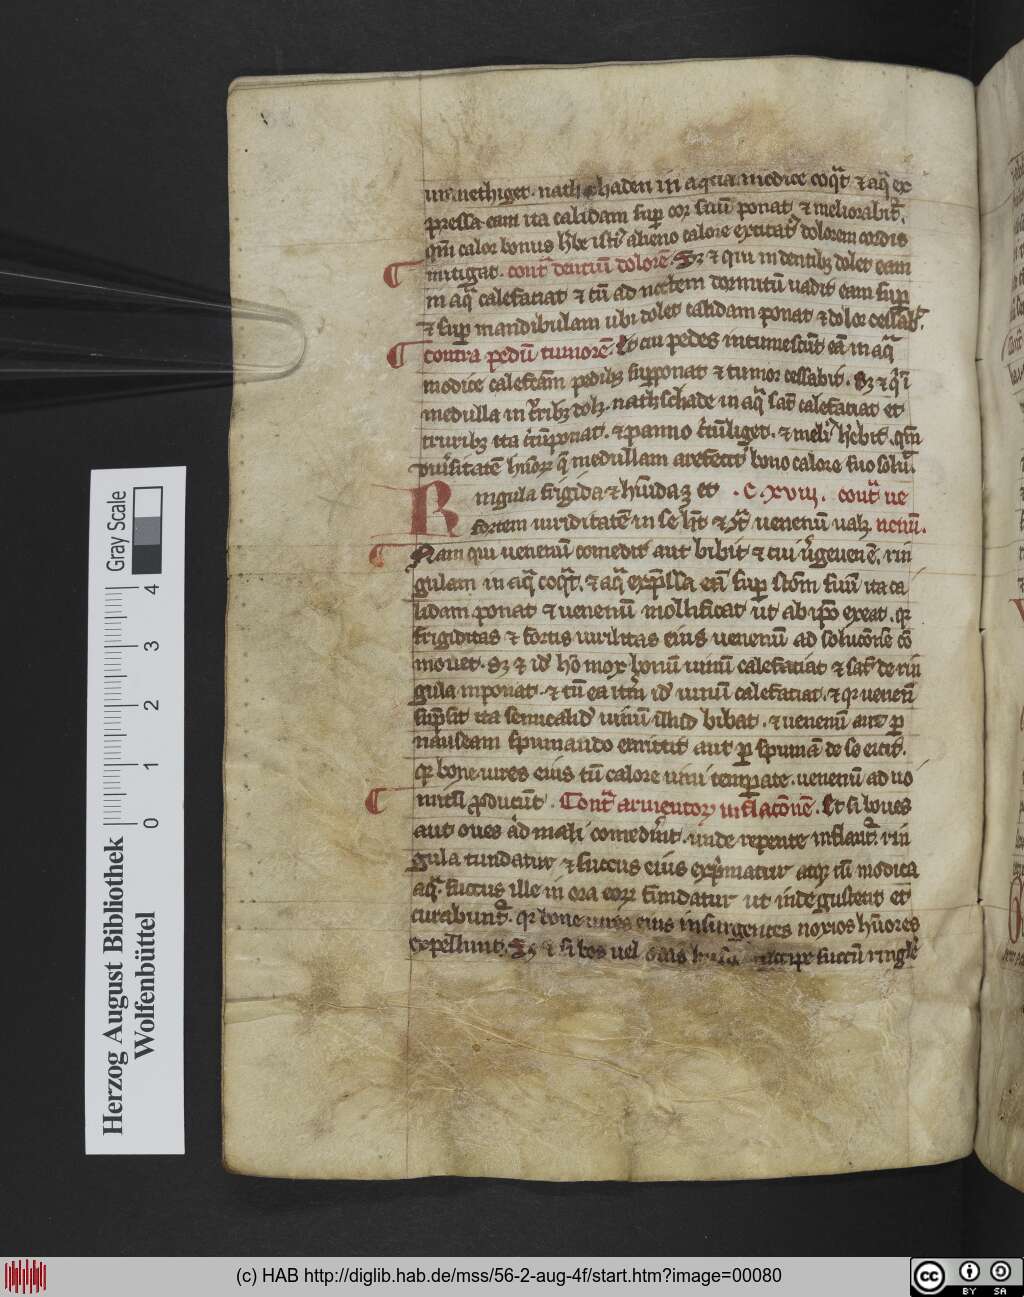 nathschaden in aqua modice coq̄t ⁊ aq̄ ex
pressa eam ita calidam sup̱ cor suū ponat ⁊ meliorabit᷑.
qm̄ calor bonus alieno calore excitat᷑ dolorem cordis
mitigat. cont̄ dentiū dolorē. Sꝫ ⁊ qui in dentibꝫ dolet eam
in aq̄ calefaciat ⁊ cū ad noctem dormitū uadit eam sup̱
⁊ sup̱ mandibulam ubi dolet calidam ponat ⁊ dolor cessab̄.
contra pedū tumorē. Et cui pedes intumescūt eā in aq̄
modice calefc̄am pedibꝫ supponat ⁊ tumor cessabit. Sꝫ ⁊ q̇ i
medulla in c̄ribꝫ dolꝫ. nathschade in aq̄ sat̄ calefaciat et
cruribꝫ ita c̄cūponat. ⁊ panno c̄cūliget. ⁊ meli᷑ h̄ebit. qm̄
medullam arefecit bono calore suo
Ringula frigida ⁊ hūida ꝫ et . C. xviij. cont̄ ue
fortem uiriditatē in se h̄t ⁊ 9t̄ uenenū ualꝫ nenū.
Nam qui uenenū comedit aut bibit ⁊ cui rin
gulam in aq̄ coq̄t. ⁊ aq̄ exp̄ssa eā sup̱ stom̄ suū ita ca
lidam ponat ⁊ uenenū mollificat ut ab ip̄o exeat. qꝛ
frigiditas ⁊ fortis uirilitas eius uenenū ad soluc̄onē cō
mouet. Sꝫ ⁊ id᷑ hō mox bonū uinū calefaciat ⁊ sat̄ de rin
gula inponat. ⁊ cū ea it̄m id᷑ uinū calefaciat. ⁊ qꝛ uenenū
sūpsit ita semicalid᷑ uinū illud bibat. ⁊ uenenū aut p̱
nauseam spumando emittit aut p̱ spumā de se eicit.
qꝛ bone uires eius cū calore uini temperate. uenenū ad uo
mitū ꝓducūt. Cont̄ armentoꝝ inflac̄onē. Et si boues
aut oues ad mali comederīt. unde repente inflant᷑. rin
gula tundatur ⁊ succus eius exp̄matur atqꝫ cū modica
aq̄. succus ille in ora eoꝝ fundatur ut inde gustent et
curabunt᷑. qꝛ bone uires eius insurgentes noxios hūores
expellunt. Sꝫ ⁊ si bos uel ouis accipe succū ringle
Herzog August Bibliothek
Wolfenbüttel
Gray Scale
0 1 2 3 4
(c) HAB http://diglib.hab.de/mss/56-2-aug-4f/start.htm?image=00080
cc BY SA